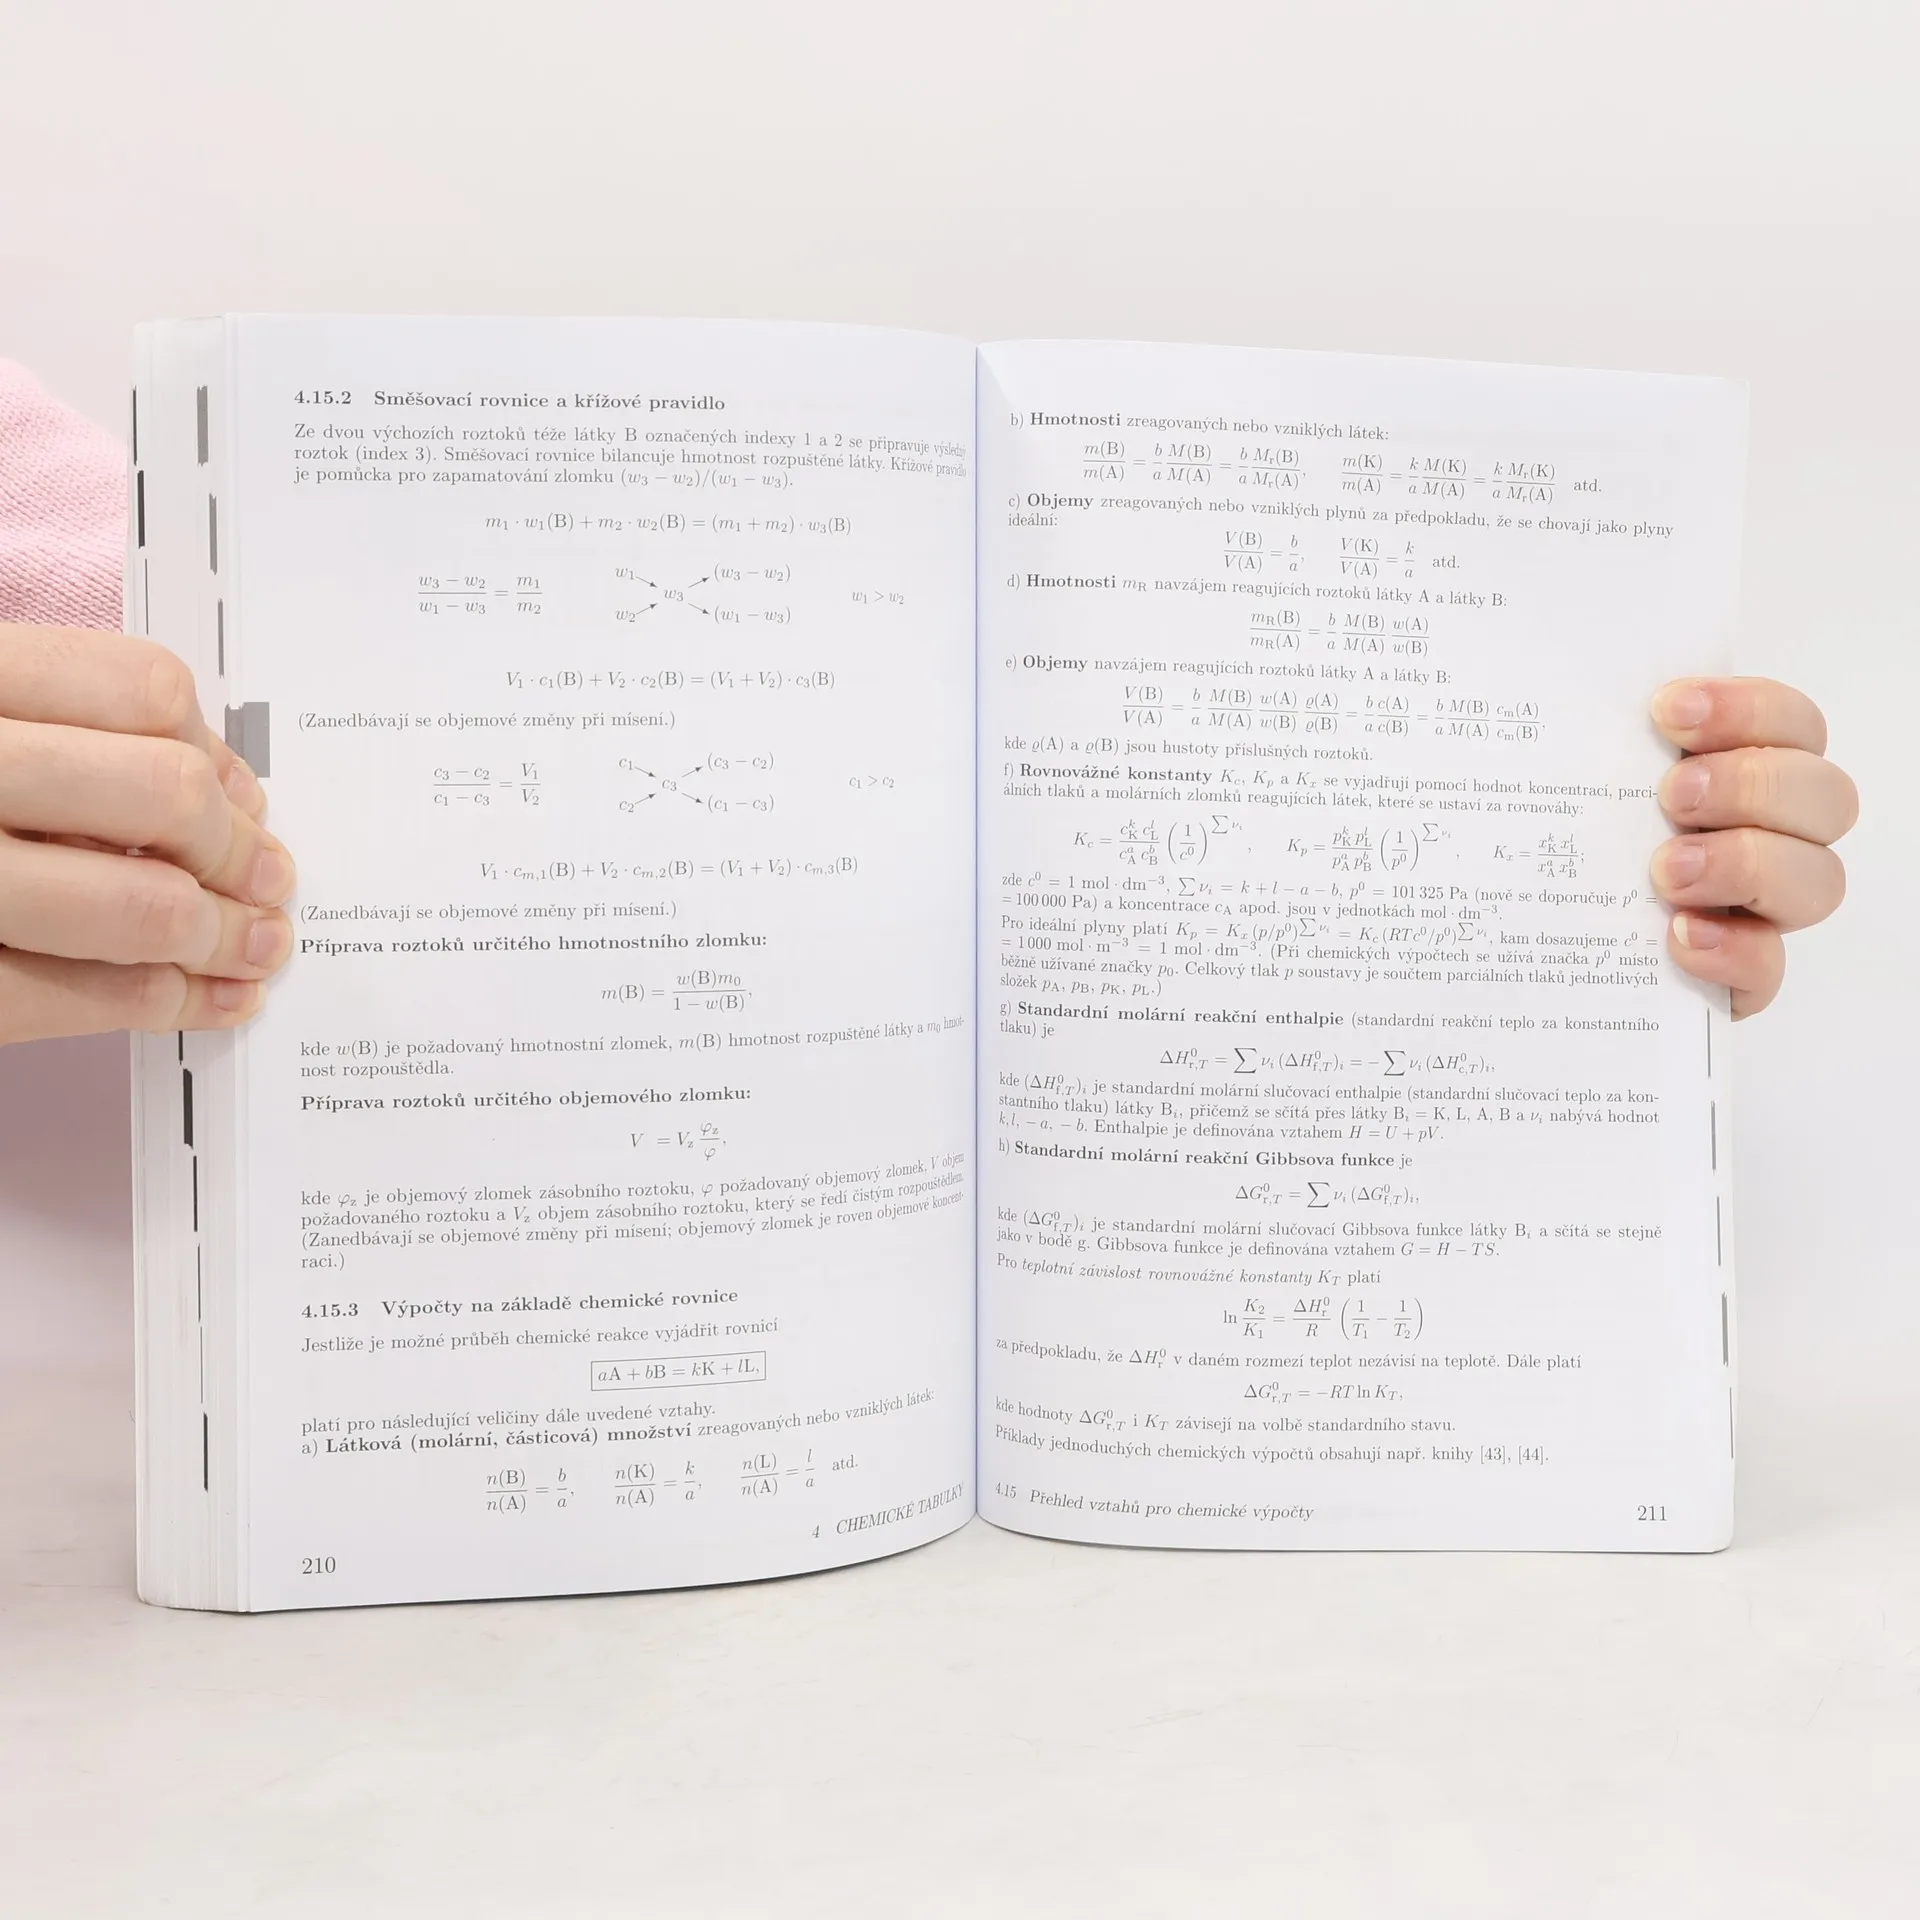 4.15.2 Směšovací rovnice a křížové pravidlo
Ze dvou výchozích roztoků téže látky B označených indexy 1 a 2 se připravuje výsledný
roztok (index 3). Směšovací rovnice bilancuje hmotnost rozpuštěné látky. Křížové pravidlo
je pomůcka pro zapamatování zlomku (w₃ − w₂)/(w₁ − w₃).
m₁ · w₁(B) + m₂ · w₂(B) = (m₁ + m₂) · w₃(B)
(w₃ − w₂)/(w₁ − w₃) = m₁/m₂ w₁ w₂ w₃ (w₃ − w₂) (w₁ − w₃) w₁ > w₂
V₁ · c₁(B) + V₂ · c₂(B) = (V₁ + V₂) · c₃(B)
(Zanedbávají se objemové změny při mísení.)
(c₃ − c₂)/(c₁ − c₃) = V₁/V₂ c₁ c₂ c₃ (c₃ − c₂) (c₁ − c₃) c₁ > c₂
V₁ · c_{m,1}(B) + V₂ · c_{m,2}(B) = (V₁ + V₂) · c_{m,3}(B)
(Zanedbávají se objemové změny při mísení.)
Příprava roztoků určitého hmotnostního zlomku:
m(B) = w(B)m₀/(1 − w(B)),
kde w(B) je požadovaný hmotnostní zlomek, m(B) hmotnost rozpuštěné látky a m₀ hmot-
nost rozpouštědla.
Příprava roztoků určitého objemového zlomku:
V = V_z φ_z/φ,
kde φ_z je objemový zlomek zásobního roztoku, φ požadovaný objemový zlomek, V objem
požadovaného roztoku a V_z objem zásobního roztoku, který se ředí čistým rozpouštědlem.
(Zanedbávají se objemové změny při mísení; objemový zlomek je roven objemové koncent-
raci.)
4.15.3 Výpočty na základě chemické rovnice
Jestliže je možné průběh chemické reakce vyjádřit rovnicí
aA + bB = kK + lL,
platí pro následující veličiny dále uvedené vztahy.
a) Látková (molární, částicová) množství zreagovaných nebo vzniklých látek:
n(B)/n(A) = b/a, n(K)/n(A) = k/a, n(L)/n(A) = l/a atd.
4 CHEMICKÉ TABULKY
210
b) Hmotnosti zreagovaných nebo vzniklých látek:
m(B)/m(A) = b M(B)/a M(A) = b M_r(B)/a M_r(A), m(K)/m(A) = k M(K)/a M(A) = k M_r(K)/a M_r(A) atd.
c) Objemy zreagovaných nebo vzniklých plynů za předpokladu, že se chovají jako plyny
ideální:
V(B)/V(A) = b/a, V(K)/V(A) = k/a atd.
d) Hmotnosti m_R navzájem reagujících roztoků látky A a látky B:
m_R(B)/m_R(A) = b/a M(B)/M(A) w(A)/w(B)
e) Objemy navzájem reagujících roztoků látky A a látky B:
V(B)/V(A) = b/a M(B)/M(A) w(A)/w(B) ϱ(A)/ϱ(B) = b c(A)/a c(B) = b M(B)/a M(A) c_m(A)/c_m(B),
kde ϱ(A) a ϱ(B) jsou hustoty příslušných roztoků.
f) Rovnovážné konstanty K_c, K_p a K_x se vyjadřují pomocí hodnot koncentrací, parci-
álních tlaků a molárních zlomků reagujících látek, které se ustaví za rovnováhy:
K_c = c_K^k c_L^l/c_A^a c_B^b (1/c⁰)^{∑ν_i}, K_p = p_K^k p_L^l/p_A^a p_B^b (1/p⁰)^{∑ν_i}, K_x = x_K^k x_L^l/x_A^a x_B^b;
zde c⁰ = 1 mol · dm⁻³, ∑ν_i = k + l − a − b, p⁰ = 101 325 Pa (nově se doporučuje p⁰ =
= 100 000 Pa) a koncentrace c_A apod. jsou v jednotkách mol · dm⁻³.
Pro ideální plyny platí K_p = K_x (p/p⁰)^{∑ν_i} = K_c (RTc⁰/p⁰)^{∑ν_i}, kam dosazujeme c⁰ =
= 1 000 mol · m⁻³ = 1 mol · dm⁻³. (Při chemických výpočtech se užívá značka p⁰ místo
běžně užívané značky p₀. Celkový tlak p soustavy je součtem parciálních tlaků jednotlivých
složek p_A, p_B, p_K, p_L.)
g) Standardní molární reakční enthalpie (standardní reakční teplo za konstantního
tlaku) je
ΔH⁰_{r,T} = ∑ν_i (ΔH⁰_{f,T})_i = −∑ν_i (ΔH⁰_{c,T})_i,
kde (ΔH⁰_{f,T})_i je standardní molární slučovací enthalpie (standardní slučovací teplo za kon-
stantního tlaku) látky B_i, přičemž se sčítá přes látky B_i = K, L, A, B a ν_i nabývá hodnot
k, l, − a, − b. Enthalpie je definována vztahem H = U + pV.
h) Standardní molární reakční Gibbsova funkce je
ΔG⁰_{r,T} = ∑ν_i (ΔG⁰_{f,T})_i,
kde (ΔG⁰_{f,T})_i je standardní molární slučovací Gibbsova funkce látky B_i a sčítá se stejně
jako v bodě g. Gibbsova funkce je definována vztahem G = H − TS.
Pro teplotní závislost rovnovážné konstanty K_T platí
ln K₂/K₁ = ΔH⁰_r/R (1/T₁ − 1/T₂)
za předpokladu, že ΔH⁰_r v daném rozmezí teplot nezávisí na teplotě. Dále platí
ΔG⁰_{r,T} = −RT ln K_T,
kde hodnoty ΔG⁰_{r,T} i K_T závisejí na volbě standardního stavu.
Příklady jednoduchých chemických výpočtů obsahují např. knihy [43], [44].
4.15 Přehled vztahů pro chemické výpočty
211